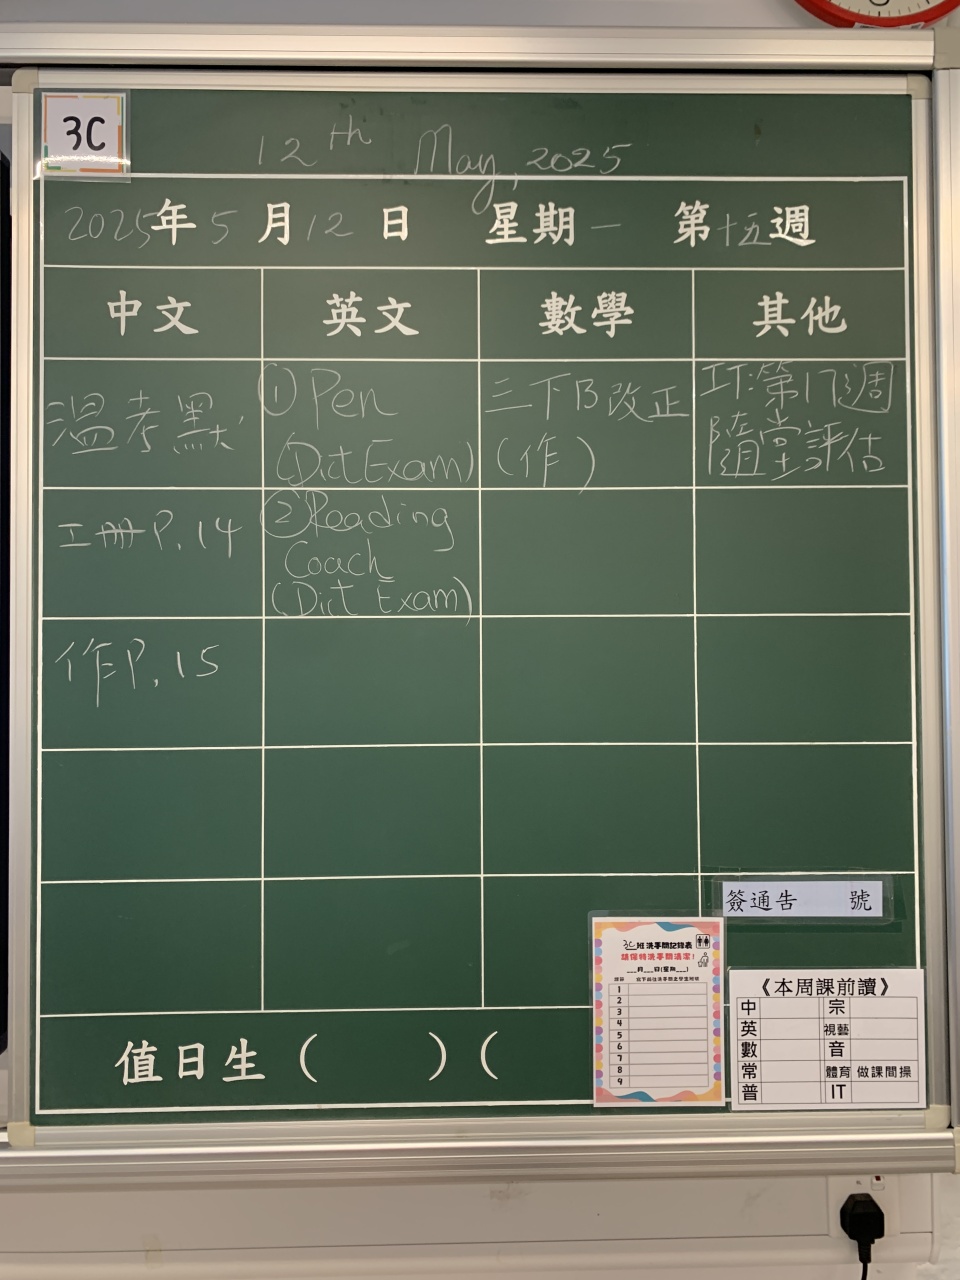 3C
12th May, 2025
2025年5月12日 星期一 第十五週
中文 英文 數學 其他
溫考默
①Pen
(Dict Exam)
三下B改正
(作)
IT:第17週
隨堂評估
工冊P.14
②Reading
Coach
(Dict Exam)
作P.15
簽通告 號
3C班洗手間記錄表
請保持洗手間清潔!
___月___日(星期___)
1
2
3
4
5
6
7
8
9
《本周課前讀》
中 宗
英 視藝
數 音
常 體育 做課間操
普 IT
值日生( )(